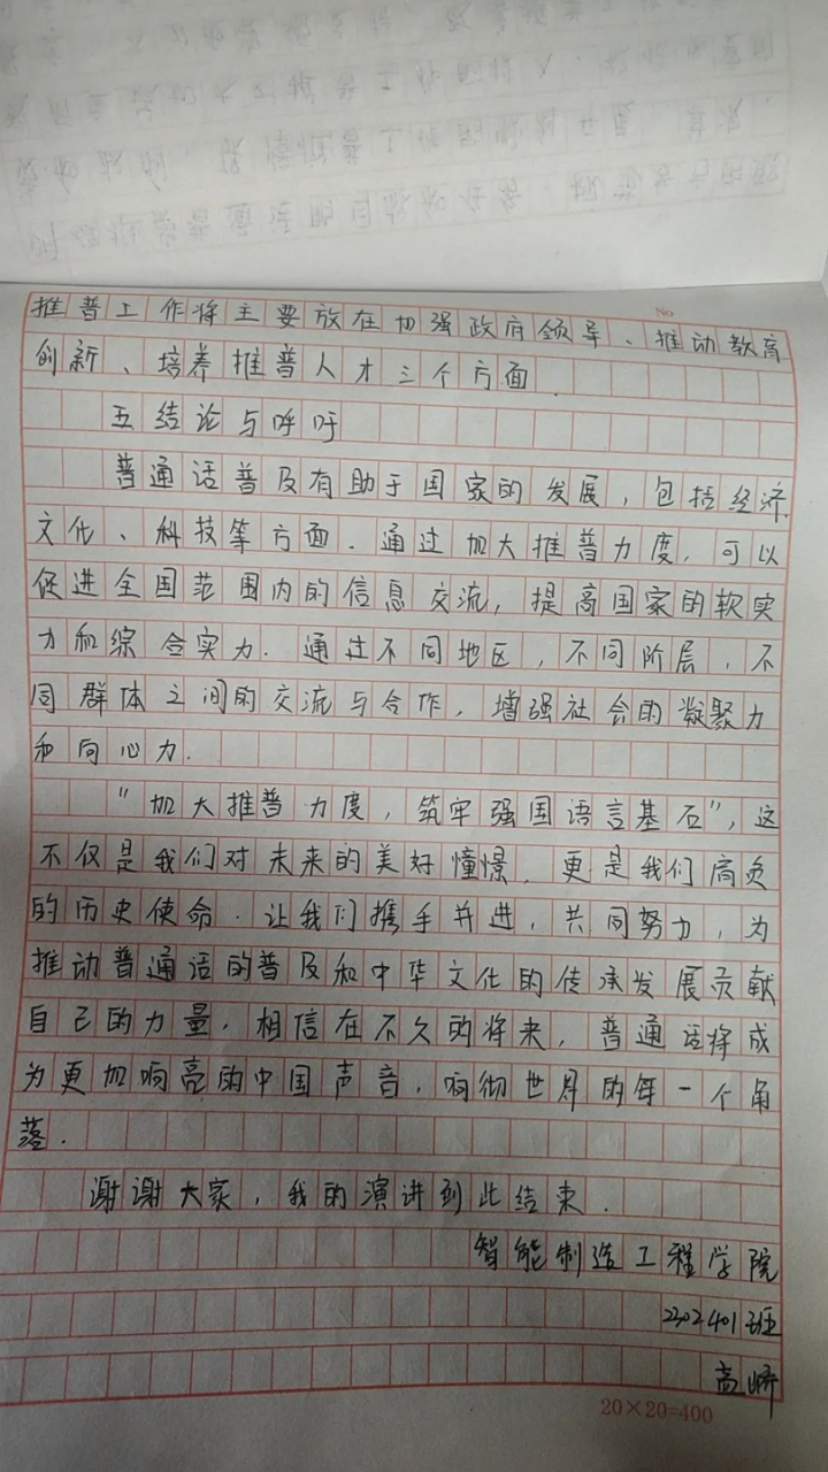 No
推普工作将主要放在加强政府领导、推动教育
创新、培养推普人才三个方面.
五结论与呼吁
普通话普及有助于国家的发展，包括经济.
文化、科技等方面.通过加大推普力度，可以
促进全国范围内的信息交流，提高国家的软实
力和综合实力.通过不同地区，不同阶层，不
同群体之间的交流与合作，增强社会的凝聚力
和向心力.
"加大推普力度，筑牢强国语言基石"，这
不仅是我们对未来的美好憧憬，更是我们肩负
的历史使命.让我们携手并进，共同努力，为
推动普通话的普及和中华文化的传承发展贡献
自己的力量，相信在不久的将来，普通话将成
为更加响亮的中国声音，响彻世界的每一个角
落.
谢谢大家，我的演讲到此结束.
智能制造工程学院
2302401班
高娇
20×20=400